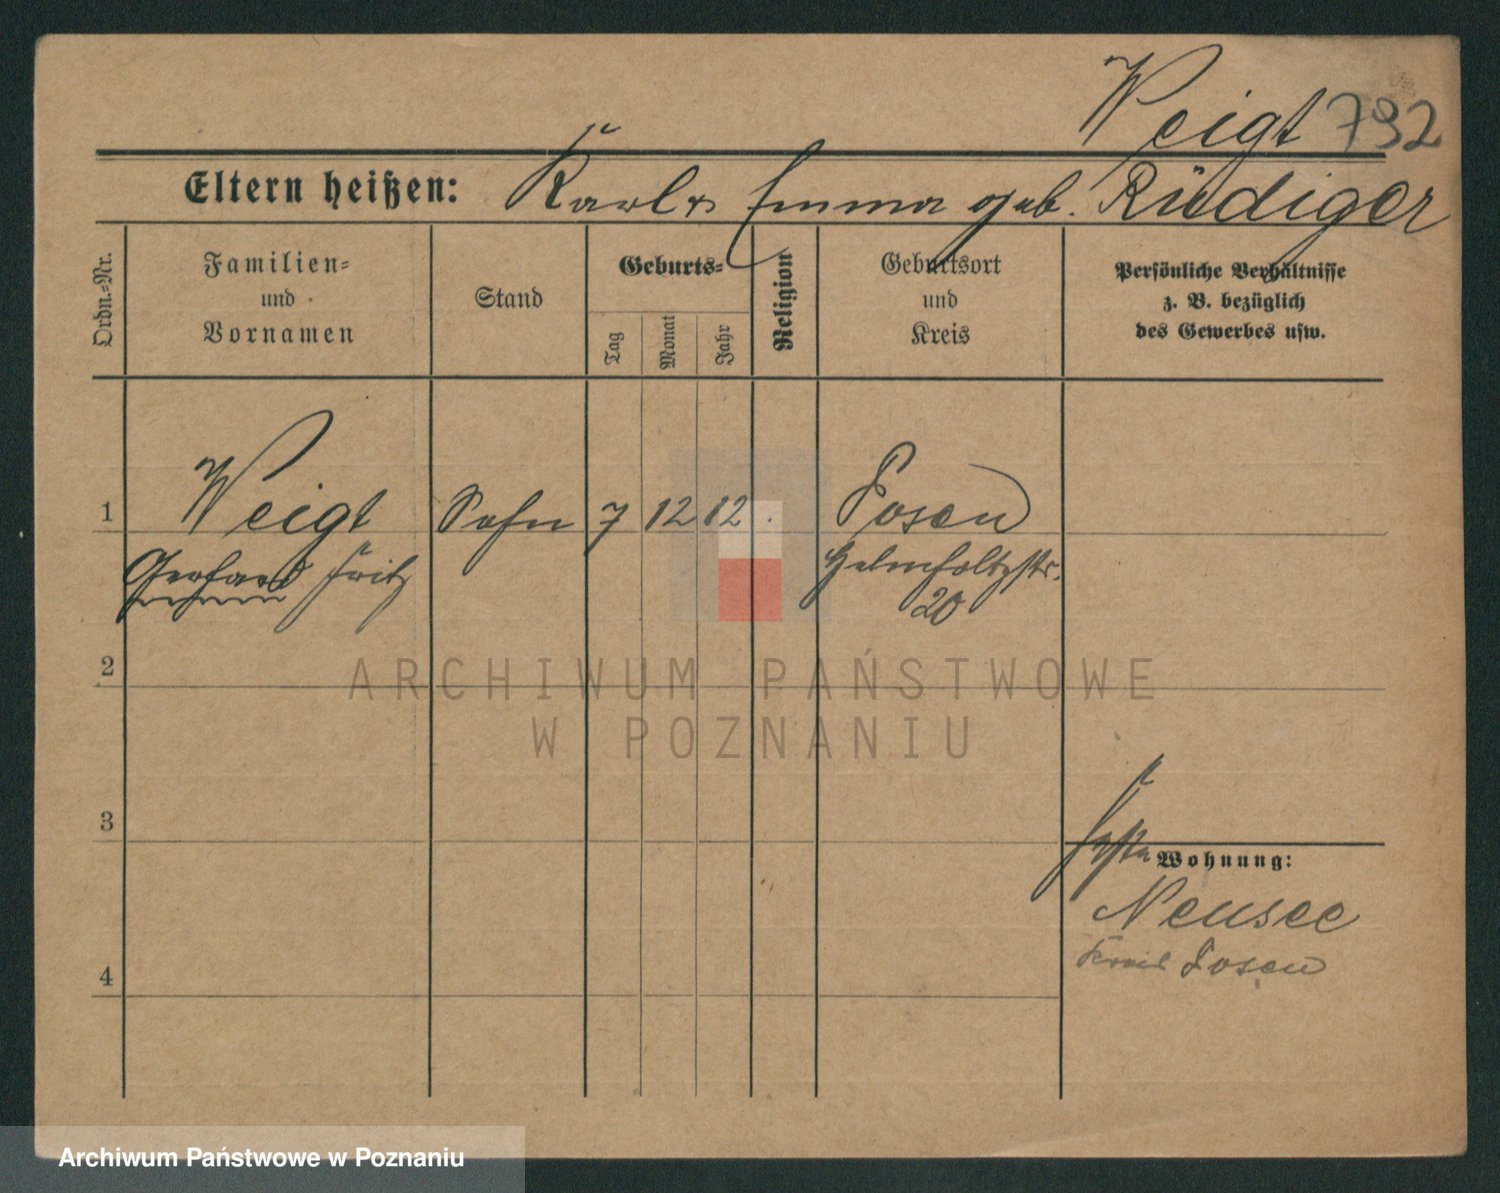 Weigt 792
Eltern heißen: Karl & Emma geb. Rüdiger
Ordn.-Nr.
Familien-
und
Vornamen
Stand
Geburts-
Tag
Monat
Jahr
Religion
Geburtsort
und
Kreis
Persönliche Verhältnisse
z. B. bezüglich
des Gewerbes usw.
1 Weigt Sohn 7 12 12. Posen
Gerhard Fritz Helmholtzstr.
20
2
ARCHIWUM PAŃSTWOWE
W POZNANIU
3
Wohnung:
Neusee
Kreis Posen
4
Archiwum Państwowe w Poznaniu